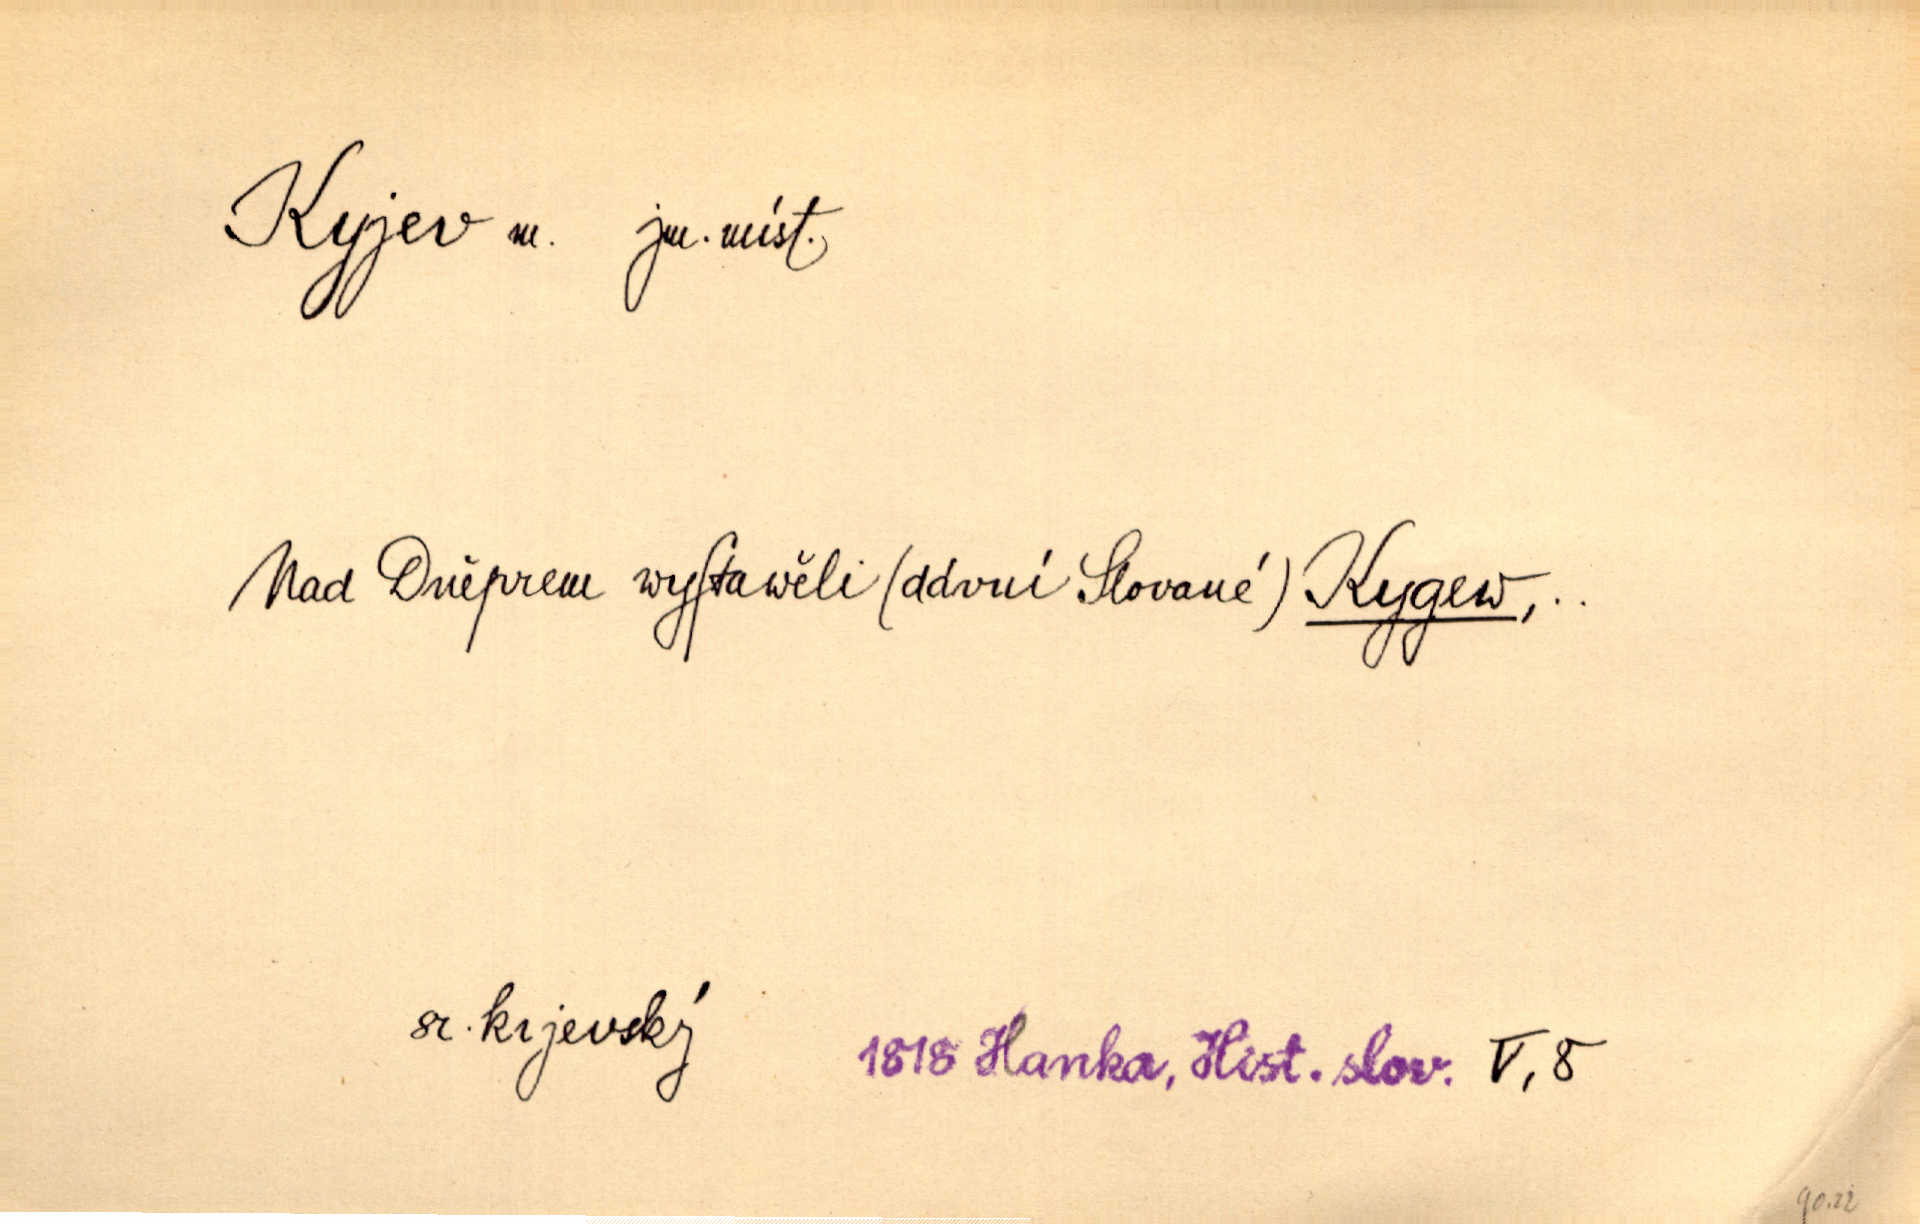 Kyjev m. jm. míst.
Nad Dněprem wyſtawěli (dávní Slované) Kygew, ..
sr. kijevský
1818 Hanka, Hist. slov. V, 8